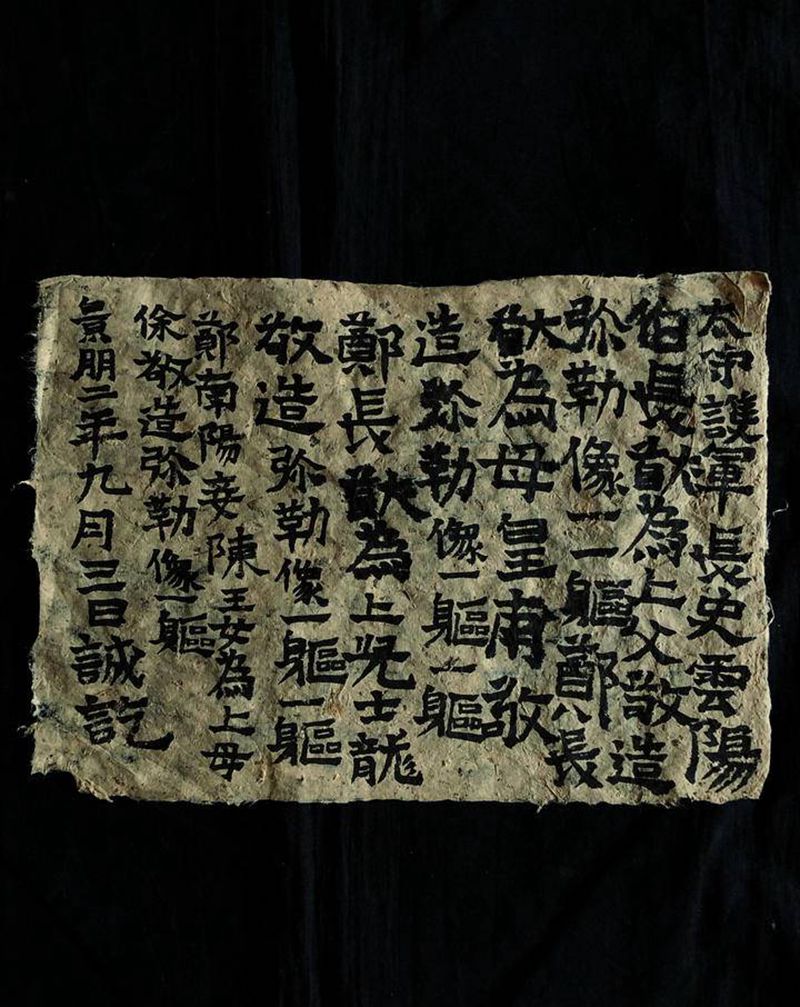 太守護軍長史雲陽
伯長猷為上父敬造
弥勒像一一軀鄭八長
猷為母皇甫敬
造弥勒像一軀一軀
鄭長猷為上兇士龍
敬造弥勒像一軀一軀
鄭南陽妾陳王女為上母
徐敬造弥勒像一軀
景明二年九月三日誠訖